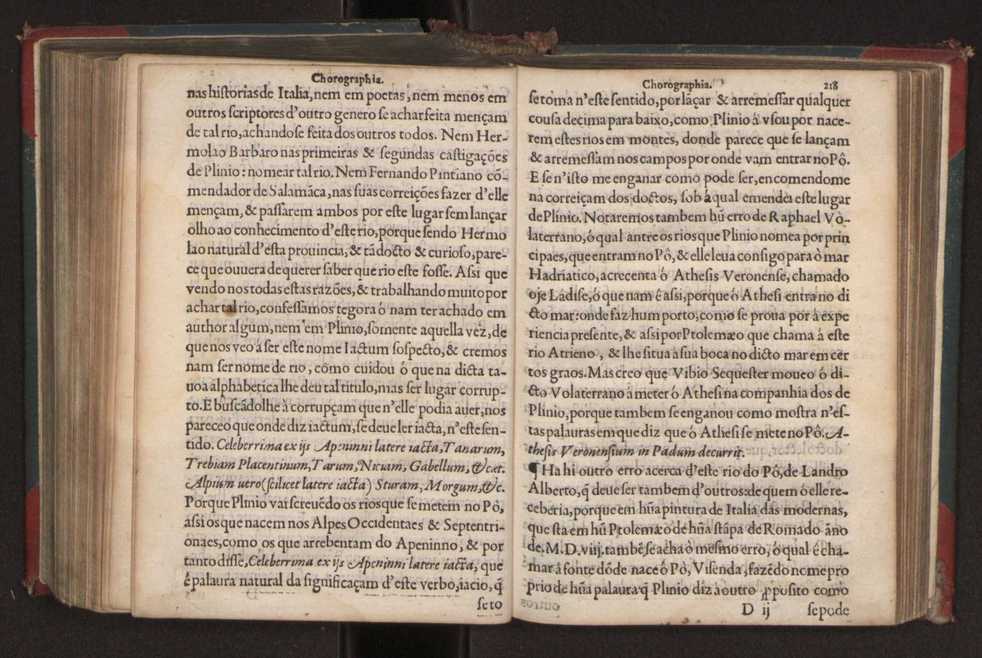 Chorographia.
nas historias de Italia, nem em poetas, nem menos em
outros scriptores d'outro genero se achar feita mençam
de tal rio, achandose feita dos outros todos. Nem Her-
molao Barbaro nas primeiras & segundas castigações
de Plinio: nomear tal rio. Nem Fernando Pintiano cō-
mendador de Salamāca, nas suas correições fazer d'elle
mençam, & passarem ambos por este lugar sem lançar
olho ao conhecimento d'este rio, porque sendo Hermo
lao natural d'esta prouincia, & tā docto & curioso, pare-
ce que ouuera de querer saber que rio este fosse. Assi que
vendo nos todas estas razões, & trabalhando muito por
achar tal rio, confessamos tegora ó nam ter achado em
author algum, nem em Plinio, somente aquella vez, de
que nos veo á ser este nome Iactum sospecto, & cremos
nam ser nome de rio, cōmo cuidou ó que na dicta ta-
uoa alphabetica lhe deu tal titulo, mas ser lugar corrup-
to. E buscādolhe à corrupçam que n'elle podia auer, nos
pareceo que onde diz iactum, se deue ler iacta, n'este sen-
tido. Celeberrima ex ijs Apeninni latere iacta, Tanarum,
Trebiam Placentinum, Tarum, Niciam, Gabellum, & cæt.
Alpium uero (scilicet latere iacta) Sturam, Morgum, &c.
Porque Plinio vai screuēdo os rios que se metem no Pó,
ássi os que nacem nos Alpes Occidentaes & Septentri-
onaes, como os que arrebentam do Apeninno, & por
tanto disse, Celeberrima ex ijs Apeninni latere iacta, que
é palaura natural da significaçam d'este verbo, iacio, q̃
se to
Chorographia. 218
se toma n'este sentido, por lāçar & arremessar qualquer
cousa de cima para baixo, como Plinio á vsou por nace-
rem estes rios em montes, donde parece que se lançam
& arremessam nos campos por onde vam entrar no Pô.
E se n'isto me enganar como pode ser, encomendome
na correiçam dos doctos, sob á qual emendei este lugar
de Plinio. Notaremos tambem hũ erro de Raphael Vo-
laterrano, ó qual antre os rios que Plinio nomea por prin
cipaes, que entram no Pô, & elle leua consigo para ò mar
Hadriatico, acrecenta ó Athesis Veronense, chamado
oje Ládise, ó que nam é assi, porque ó Athesi entra no di
cto mar: onde faz hum porto, como se proua por á expe
riencia presente, & assi por Ptolemæo que chama á este
rio Atrieno, & lhe situa à sua boca no dicto mar em cer
tos graos. Mas creo que Vibio Sequester moueo ó di-
cto Volaterrano á meter ó Athesi na companhia dos de
Plinio, porque tambem se enganou como mostra n'es-
tas palauras em que diz que ó Athesi se mete no Pô. A-
thesis Veronensium in Padum decurrit.
¶ Ha hi outro erro acerca d'este rio do Pô, de Landro
Alberto, q̃ deue ser tambem d'outros: de quem ó elle re-
ceberia, porque em hũa pintura de Italia das modernas,
que sta em hũ Ptolemæo de hũa stāpa de Roma do āno
de. M.D.viij. tambē se acha ò mesmo erro, ó qual é cha-
mar á fonte dóde nace ó Pò, Visenda, fazēdo nome pro
prio de hũa palaura q̃ Plinio diz à outro pposito como
D ij se pode